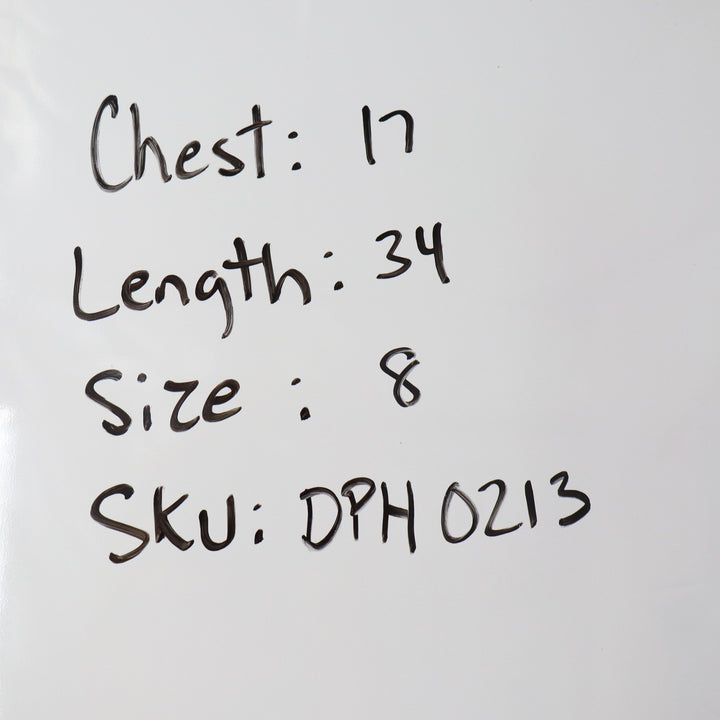 Chest: 17
Length: 34
Size : 8
SKU: DPH 0213